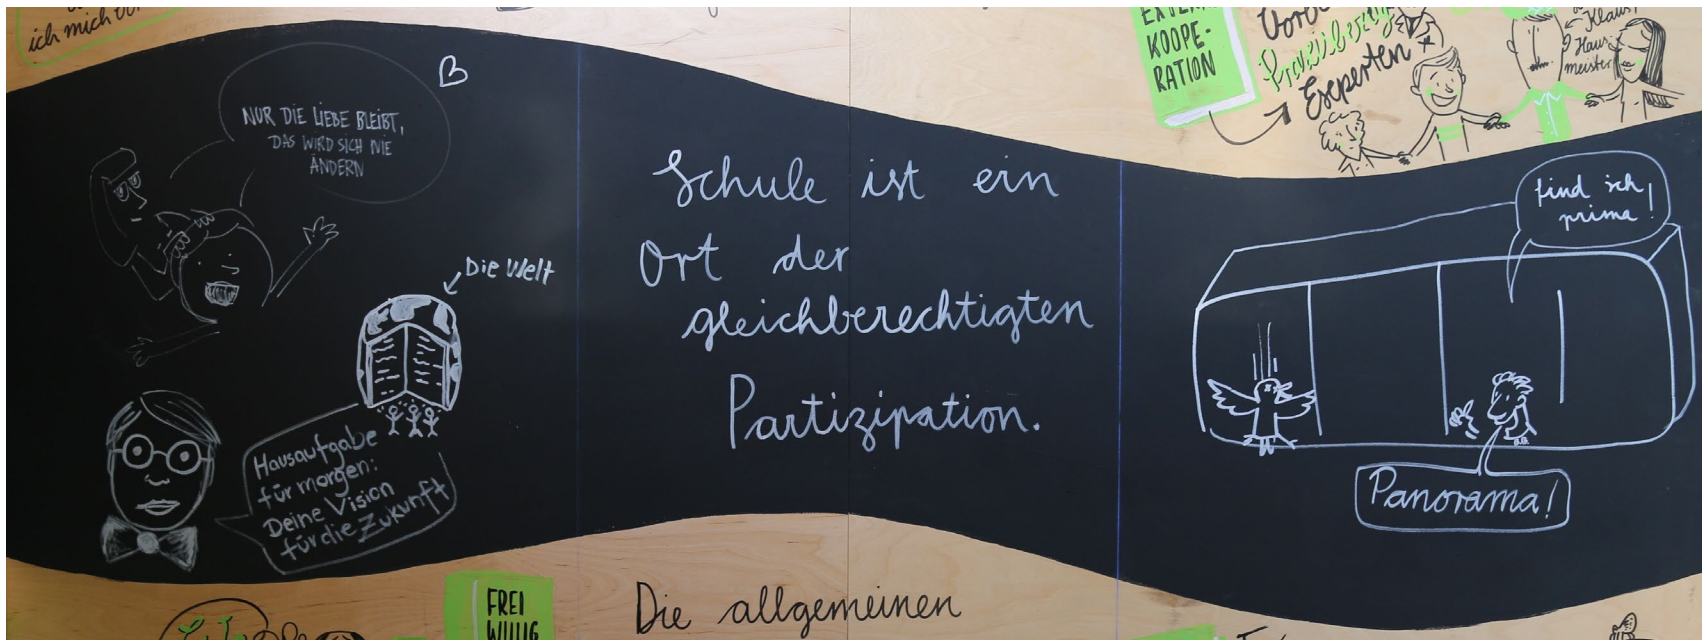 ich mich
NUR DIE LIEBE BLEIBT,
DAS WIRD SICH NIE
ÄNDERN
Die Welt
Hausaufgabe
für morgen:
Deine Vision
für die Zukunft
Schule ist ein
Ort der
gleichberechtigten
Partizipation.
EXTERNE
KOOPE-
RATION
Experten
Klaus,
Haus-
meister
find ich
prima!
Panorama!
FREI
WILLIG
Die allgemeinen